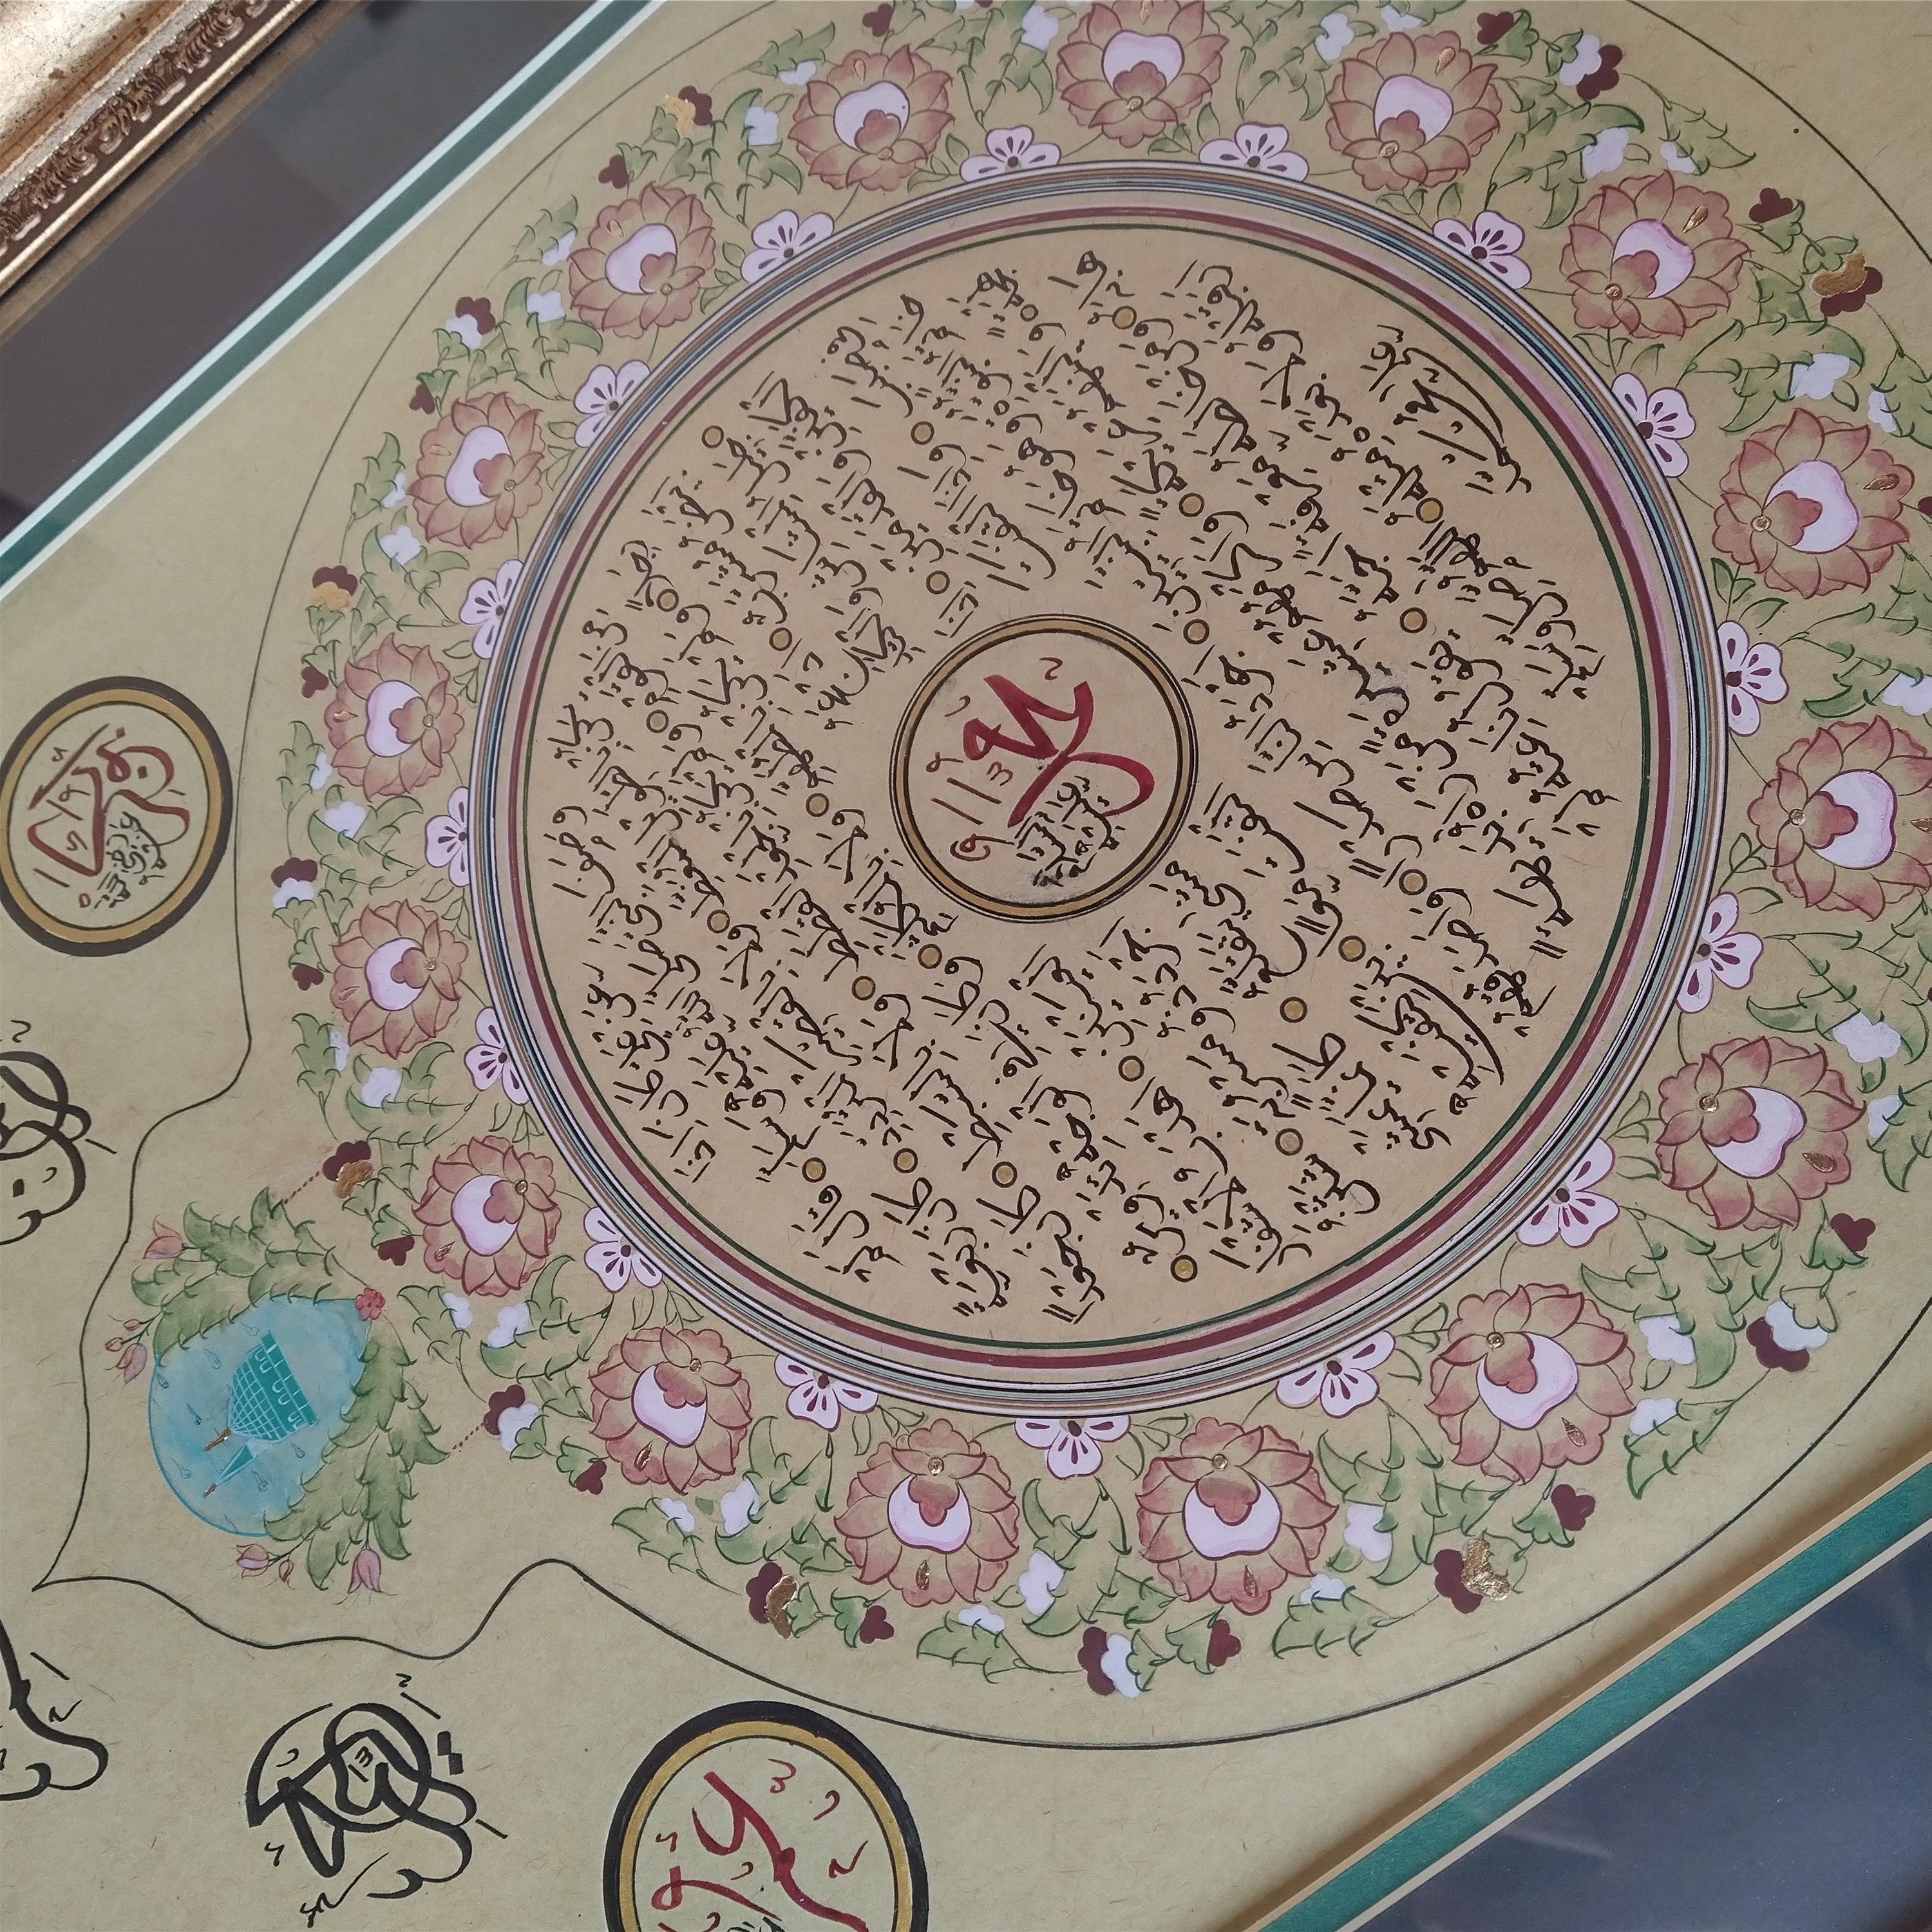 الرحيم
ابو بكر
رضي الله عنه
عمر
عَنْ عَلِيٍّ كَانَ اِذَا
وَصَفَ النَّبِيَّ صَلَّى اللّٰهُ عَلَيْهِ وَسَلَّمَ قَالَ لَمْ
يَكُنْ بِالطَّوِيلِ الْمُمَغَّطِ وَلَا بِالْقَصِيرِ الْمُتَرَدِّدِ كَانَ رَبْعَةً
مِنَ الْقَوْمِ وَلَمْ يَكُنْ بِالْجَعْدِ الْقَطَطِ وَلَا بِالسَّبِطِ كَانَ جَعْدًا
رَجِلًا وَلَمْ يَكُنْ بِالْمُطَهَّمِ وَلَا بِالْمُكَلْثَمِ وَكَانَ فِي الْوَجْهِ تَدْوِيرٌ
اَبْيَضُ مُشْرَبٌ اَدْعَجُ الْعَيْنَيْنِ اَهْدَبُ الْاَشْفَارِ
جَلِيلُ الْمُشَاشِ وَالْكَتَدِ اَجْرَدُ ذُو مَسْرُبَةٍ شَثْنُ
الْكَفَّيْنِ وَالْقَدَمَيْنِ اِذَا مَشَى يَتَقَلَّعُ كَاَنَّمَا يَمْشِي
فِي صَبَبٍ وَاِذَا الْتَفَتَ الْتَفَتَ مَعًا بَيْنَ كَتِفَيْهِ
خَاتَمُ النُّبُوَّةِ وَهُوَ خَاتَمُ النَّبِيِّينَ اَجْوَدُ النَّاسِ صَدْرًا وَاَصْدَقُهُمْ
لَهْجَةً وَاَلْيَنُهُمْ عَرِيكَةً وَاَكْرَمُهُمْ عَشِيرَةً مَنْ رَاٰهُ بَدِيهَةً
هَابَهُ وَمَنْ خَالَطَهُ مَعْرِفَةً اَحَبَّهُ يَقُولُ نَاعِتُهُ لَمْ
اَرَ قَبْلَهُ وَلَا بَعْدَهُ مِثْلَهُ اَللّٰهُمَّ صَلِّ وَسَلِّمْ
عَلٰى مُحَمَّد
مُحَمَّد
عَلَيْهِ السَّلَام